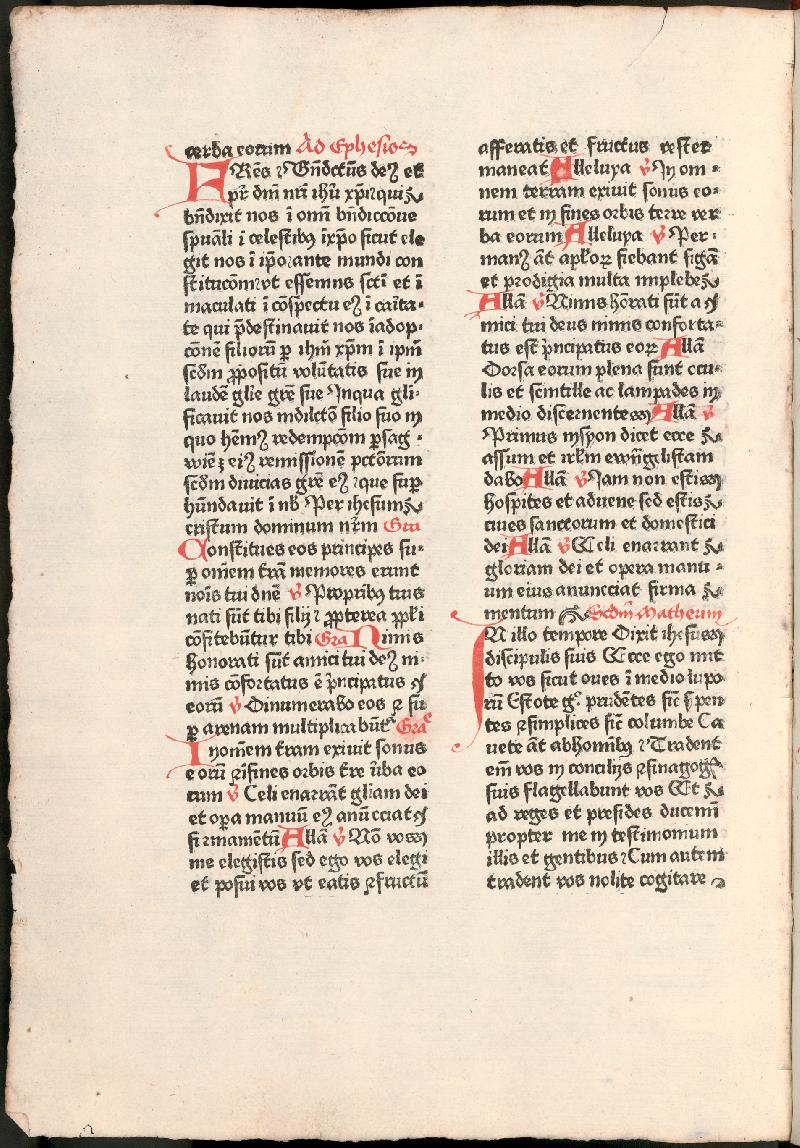 verba eorum Ad Ephesios
FRēs Bn̄dct̄us deꝰ et
pr̄ dn̄i nr̄i ihū xp̄i qui
bn̄dixit nos ī om̄i bn̄diccōne
spūali ī celestibꝫ īxp̄o sicut ele
git nos ī ip̄o ante mundi con
stitucōm vt essemus sct̄i et ī
maculati ī cōspectu eꝰ ī caīta-
te qui p̄destinauit nos īadop-
cōnē filiorū ꝑ ihm̄ xp̄m ī ip̄m
scd̄m ꝓpositū volūtatis sue in
laudē glīe grē sue Inqua gli-
ficauit nos indilctō filio suo in
quo hēmꝰ redempcōm ꝑ sāg-
winē eiꝰ remissionē pctōrum
scd̄m diuicias grē eꝰ que suꝑ
hūndauit ī nb̄ Per ihesum
cristum dominum nr̄m Gra
Constitues eos principes su-
ꝑ om̄em tr̄am memores erunt
nōis tui dn̄e v̄ Propribꝫ tuis
nati sūt tibi filij ꝓpterea ppl̄i
cōfitebūtur tibi Gra Nimis
honorati sūt amici tui deꝰ ni-
mis cōfortatus ē p̄ncipatus
eorū v̄ Dinumerabo eos ꝛ su
ꝑ arenam multiplicabūtr Gra
Inom̄em tr̄am exiuit sonus
eorū ꝛīfines orbis tr̄e v̄ba eo
rum v̄ Celi enarrāt gliam dei
et oꝑa manuū eꝰ anūcciat
firmamentū Allā v̄ Nō vos
me elegistis sed ego vos elegi
et posui vos vt eatis ꝛ fructū
afferatis et fructus vester
maneat Alleluya v̄ In om-
nem terram exiuit sonus eo-
rum et in fines orbis terre ver
ba eorum Alleluya v̄ Per-
manꝰ āt apl̄oꝝ fiebant signā
et prodigia multa inplebe
Allā v̄ Nimis hōrati sūt a
mici tui deus nimis conforta-
tus est p̄ncipatus eoꝝ Allā
Dorsa eorum plena sunt ocu-
lis et scintille ac lampades in
medio discernentes Allā v̄
Primus insyon dicet ecce
assum et irl̄m ewangelistam
dabo Allā v̄ Iam non estis
hospites et aduene sed estis
ciues sanctorum et domestici
dei Allā v̄ Celi enarrant
gloriam dei et opera manu-
um eius anunciat firma
mentum Scdm̄ Matheum
IN illo tempore Dixit ihesus
discipulis suis Ecce ego mit
to vos sicut oues ī medio lupo
rū Estote gͦ prudētes sic̄ sꝑen
tes ꝛsimplices sic̄ columbe Ca
uete āt abhomībꝫ Tradent
em̄ vos in concilijs ꝛsinagogis
suis flagellabunt vos Et
ad reges et presides ducemī
propter me in testimonium
illis et gentibus Cum autem
tradent vos nolite cogitare